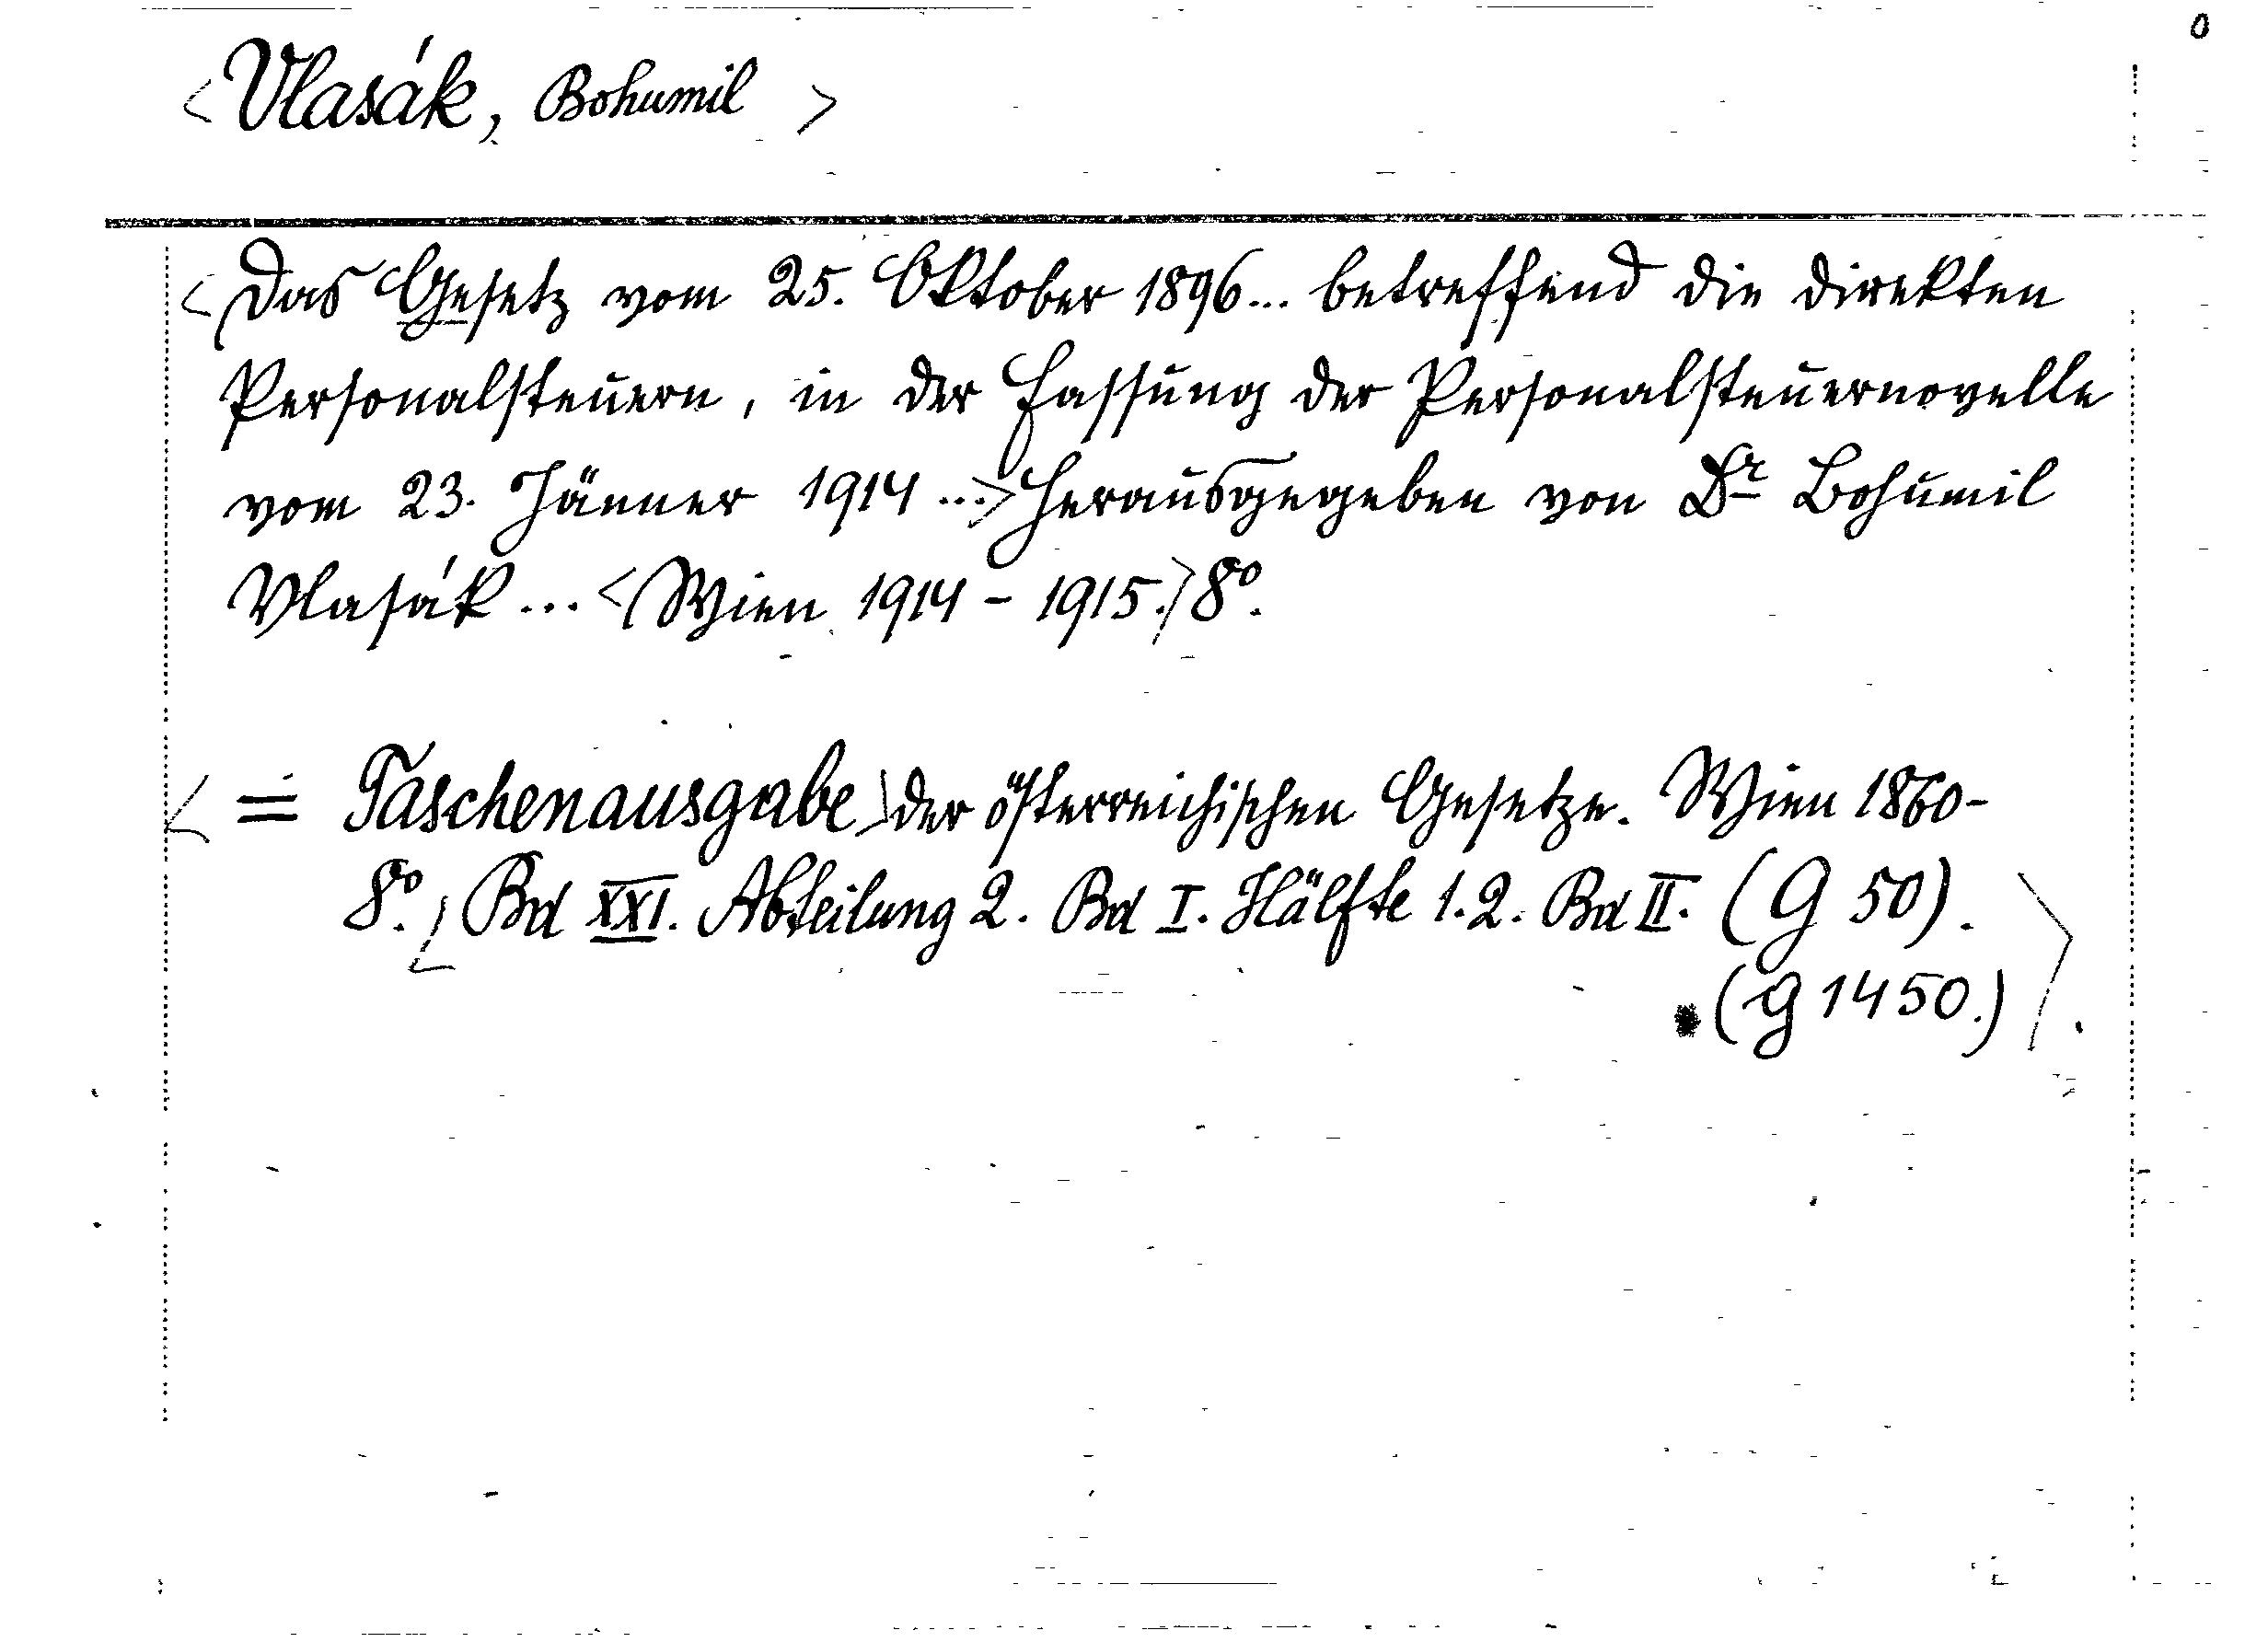 <Vlasák, Bohumil>
<Das Gesetz vom 25. Oktober 1896... betreffend die direkten
Personalsteuern, in der Fassung der Personalsteuernovelle
vom 23. Jänner 1914 ...> herausgegeben von Dr Bohumil
Vlasák ... <Wien 1914 - 1915.> 8o.
<= Taschenausgabe> der österreichischen Gesetze. Wien 1860-
8o. <Bd XXI. Abteilung 2. Bd I. Hälfte 1.2. Bd II. (G 50).
(G 1450.)>.